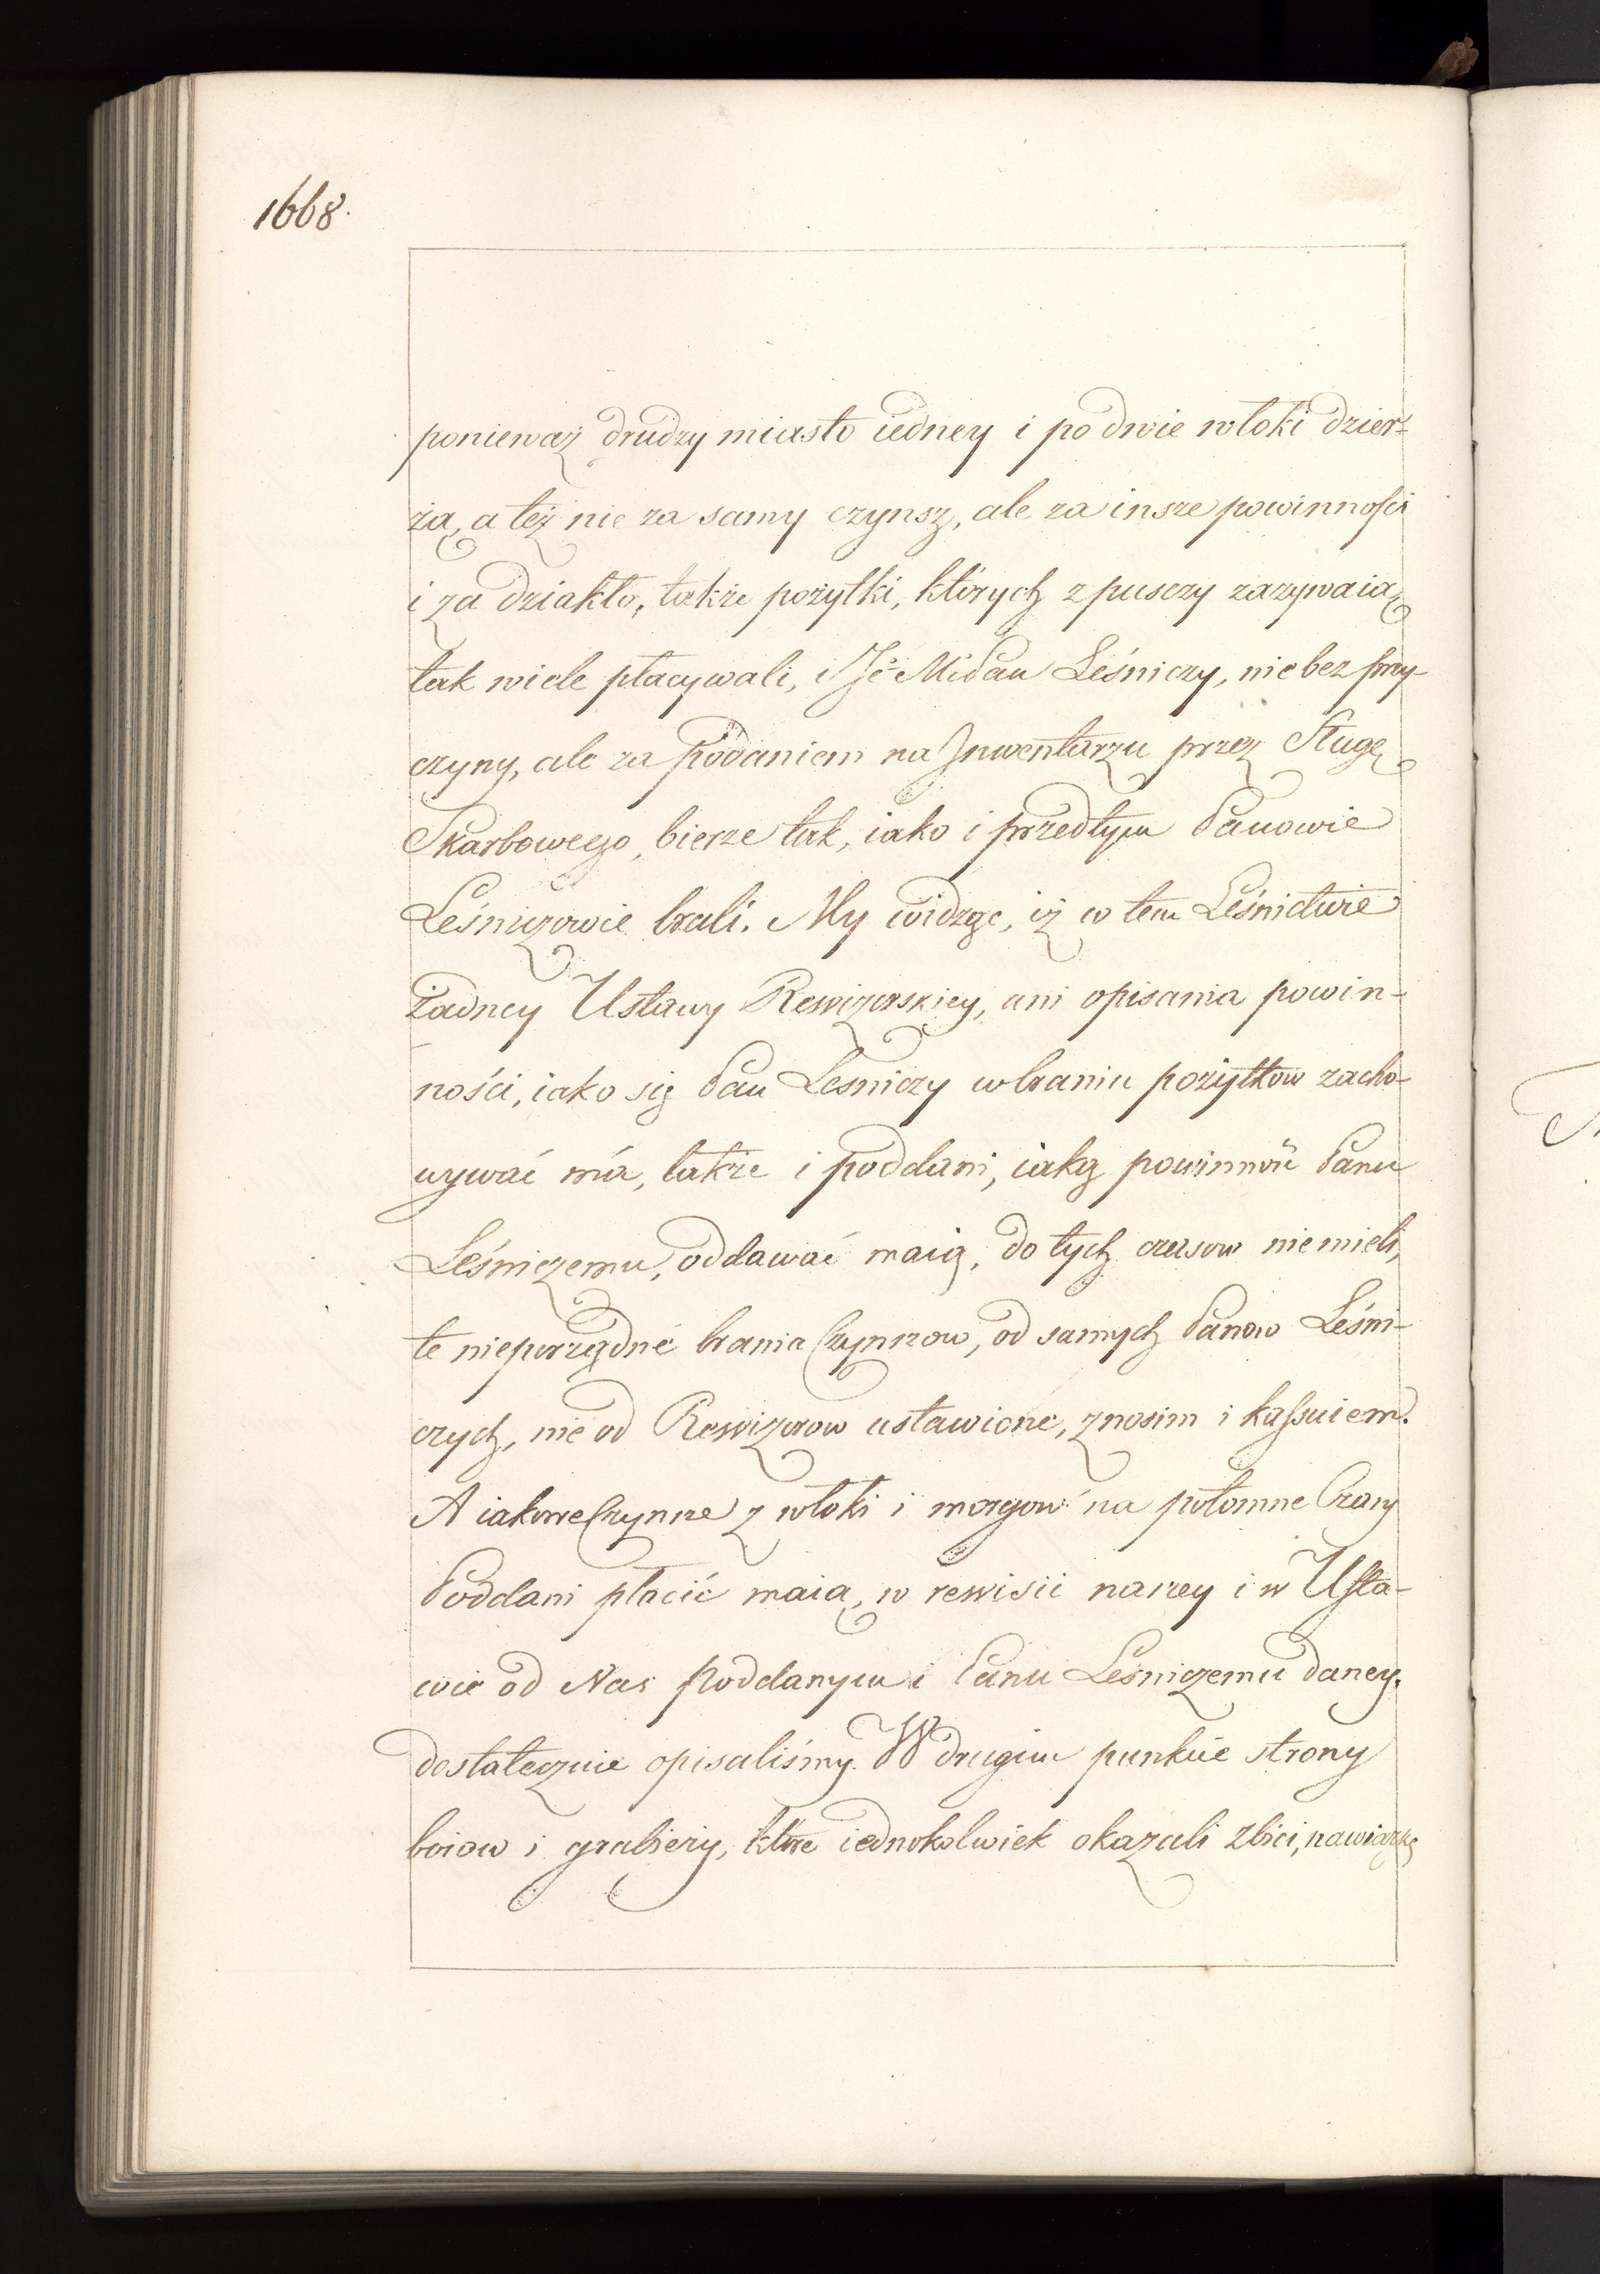 1668.
ponieważ drudzy miasto iedney i po dwie włoki dzier-
żą, a też nie za samy czynsz, ale za insze powinności
i za dziakło, także pożytki, których z pusczy zazywaią
tak wiele płacywali, i Jeº Mć Pan Leśniczy, nie bez przy-
czyny, ale za podaniem na Inwentarzu przez Sługę
Skarbowego, bierze tak, iako i przedtym Panowie
Leśniczowie brali. My widząc, iż w tem Leśnictwie
żadney Ustawy Rewizorskiey, ani opisania powin-
ności, iako się Pan Lesniczy w braniu pożytkow zacho-
wywać má, także i poddani, iaką powinność Panu
Leśniczemu, oddawać maią, do tych czasow nie mieli,
te nieporządné brania Czynszow, od samych Panow Leśni-
czych, nie od Rewizorow ustawione, znosim i kassuiem.
A iakowe Czynsze z włoki i morgow na potomne Czasy
Poddani płacić maią, w rewisii naszey i w Usta-
wie od Nas Poddanym i Panu Leśniczemu daney,
dostatecznie opisaliśmy. W drugim punkcie strony
boiow i grabieży, które iednokolwiek okazali zbici, nawiązkę